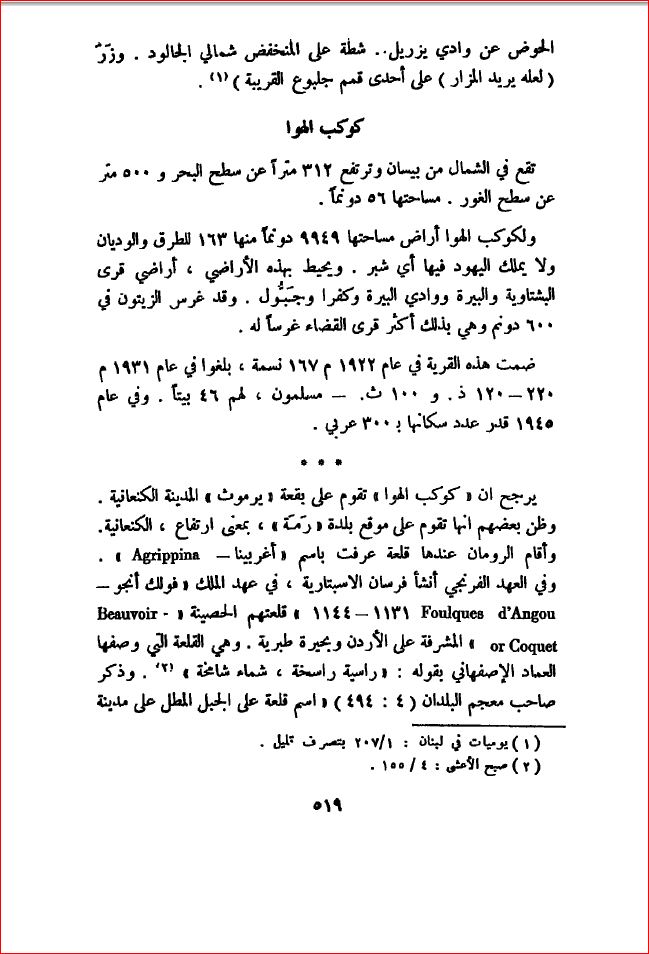 الحوض عن وادي يزريل.. شطة على المنخفض شمالي الجالود . وزَرّ
( لعله يريد المزار ) على أحدى قمم جلبوع القريبة ) (١) .
كوكب الهوا
تقع في الشمال من بيسان وترتفع ٣١٢ متراً عن سطح البحر و ٥٠٠ متر
عن سطح الغور . مساحتها ٥٦ دونماً .
ولكوكب الهوا أراض مساحتها ٩٩٤٩ دونماً منها ١٦٣ للطرق والوديان
ولا يملك اليهود فيها أي شبر . ويحيط بهذه الأراضي ، أراضي قرى
البشتاوية والبيرة ووادي البيرة وكفرا وجَبُّول . وقد غرس الزيتون في
٦٠٠ دونم وهي بذلك أكثر قرى القضاء غرساً له .
ضمت هذه القرية في عام ١٩٢٢ م ١٦٧ نسمة ، بلغوا في عام ١٩٣١ م
٢٢٠ – ١٢٠ ذ. و ١٠٠ ث. – مسلمون ، لهم ٤٦ بيتاً . وفي عام
١٩٤٥ قدر عدد سكانها بـ ٣٠٠ عربي .
* * *
يرجح ان « كوكب الهوا » تقوم على بقعة « يرموث » المدينة الكنعانية .
وظن بعضهم انها تقوم على موقع بلدة « رَمَة » ، بمعنى ارتفاع ، الكنعانية.
وأقام الرومان عندها قلعة عرفت باسم « أغريبينا – Agrippina » .
وفي العهد الفرنجي أنشأ فرسان الاسبتارية ، في عهد الملك « فولك أنجو –
Foulques d'Angou ١١٣١ – ١١٤٤ » قلعتهم الحصينة « Beauvoir -
or Coquet » المشرفة على الأردن وبحيرة طبرية . وهي القلعة التي وصفها
العماد الإصفهاني بقوله : « راسية راسخة ، شماء شامخة » (٢) . وذكر
صاحب معجم البلدان ( ٤ : ٤٩٤ ) « اسم قلعة على الجبل المطل على مدينة
( ١ ) يوميات في لبنان : ٢٠٧/١ بتصرف قليل .
( ٢ ) صبح الأعشى : ٤ / ١٥٥ .
٥١٩